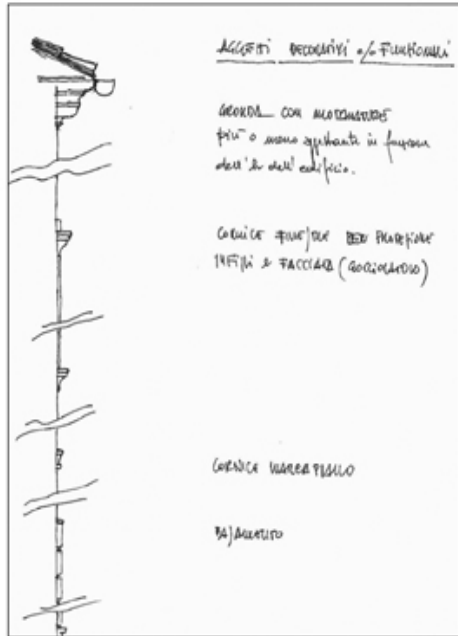 AGGETTI DECORATIVI e/o FUNZIONALI
GRONDA CON MODANATURE
più o meno aggettante in funzione
dell'h dell'edificio.
CORNICE FINESTRE PER PROTEZIONE
INFISSI e FACCIATA (GOCCIOLATOIO)
CORNICE MARCAPIANO
BASAMENTO